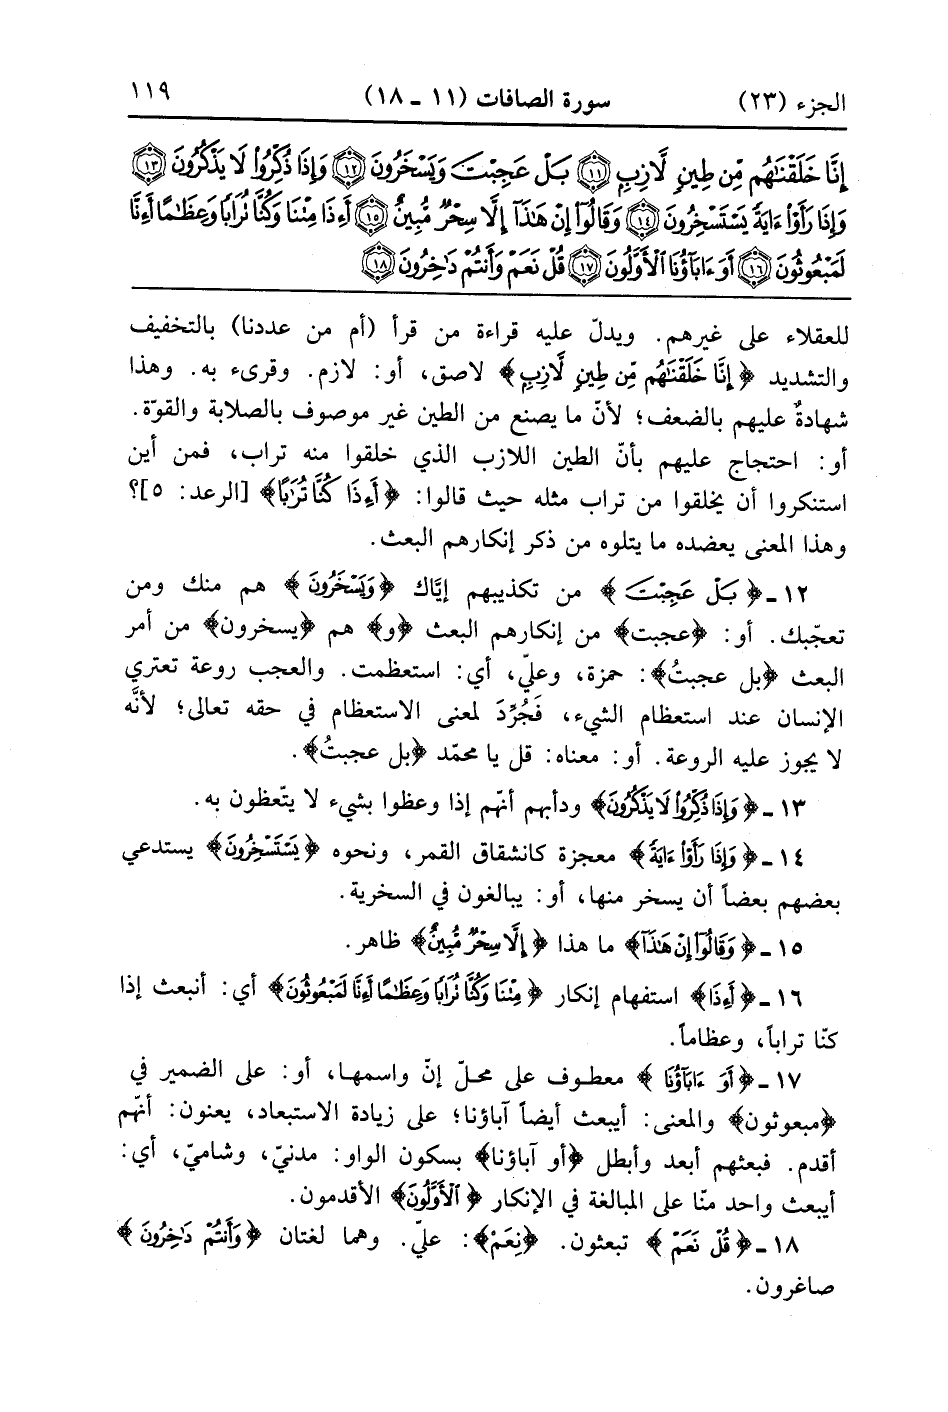 الجزء (٢٣) سورة الصافات (١١ - ١٨) ١١٩
إِنَّا خَلَقْنَٰهُم مِّن طِينٍ لَّازِبٍ ﴿١١﴾ بَلْ عَجِبْتَ وَيَسْخَرُونَ ﴿١٢﴾ وَإِذَا ذُكِّرُوا۟ لَا يَذْكُرُونَ ﴿١٣﴾
وَإِذَا رَأَوْا۟ ءَايَةً يَسْتَسْخِرُونَ ﴿١٤﴾ وَقَالُوٓا۟ إِنْ هَٰذَآ إِلَّا سِحْرٌ مُّبِينٌ ﴿١٥﴾ أَءِذَا مِتْنَا وَكُنَّا تُرَابًا وَعِظَٰمًا أَءِنَّا
لَمَبْعُوثُونَ ﴿١٦﴾ أَوَ ءَابَآؤُنَا ٱلْأَوَّلُونَ ﴿١٧﴾ قُلْ نَعَمْ وَأَنتُمْ دَٰخِرُونَ ﴿١٨﴾
للعقلاء على غيرهم. ويدلّ عليه قراءة من قرأ (أم من عددنا) بالتخفيف
والتشديد ﴿إِنَّا خَلَقْنَٰهُم مِّن طِينٍ لَّازِبٍ﴾ لاصق، أو: لازم. وقرىء به. وهذا
شهادةٌ عليهم بالضعف؛ لأنّ ما يصنع من الطين غير موصوف بالصلابة والقوّة.
أو: احتجاج عليهم بأنّ الطين اللازب الذي خلقوا منه تراب، فمن أين
استنكروا أن يخلقوا من تراب مثله حيث قالوا: ﴿أَءِذَا كُنَّا تُرَٰبًا﴾ [الرعد: ٥]؟
وهذا المعنى يعضده ما يتلوه من ذكر إنكارهم البعث.
١٢ - ﴿بَلْ عَجِبْتَ﴾ من تكذيبهم إيّاك ﴿وَيَسْخَرُونَ﴾ هم منك ومن
تعجّبك. أو: ﴿عجبت﴾ من إنكارهم البعث ﴿و﴾ هم ﴿يسخرون﴾ من أمر
البعث ﴿بل عجبتُ﴾: حمزة، وعليّ، أي: استعظمت. والعجب روعة تعتري
الإنسان عند استعظام الشيء، فَجُرِّدَ لمعنى الاستعظام في حقه تعالى؛ لأنَّه
لا يجوز عليه الروعة. أو: معناه: قل يا محمّد ﴿بل عجبتُ﴾.
١٣ - ﴿وَإِذَا ذُكِّرُوا۟ لَا يَذْكُرُونَ﴾ ودأبهم أنّهم إذا وعظوا بشيء لا يتّعظون به.
١٤ - ﴿وَإِذَا رَأَوْا۟ ءَايَةً﴾ معجزة كانشقاق القمر، ونحوه ﴿يَسْتَسْخِرُونَ﴾ يستدعي
بعضهم بعضاً أن يسخر منها، أو: يبالغون في السخرية.
١٥ - ﴿وَقَالُوٓا۟ إِنْ هَٰذَآ﴾ ما هذا ﴿إِلَّا سِحْرٌ مُّبِينٌ﴾ ظاهر.
١٦ - ﴿أَءِذَا﴾ استفهام إنكار ﴿مِتْنَا وَكُنَّا تُرَابًا وَعِظَٰمًا أَءِنَّا لَمَبْعُوثُونَ﴾ أي: أنبعث إذا
كنّا تراباً، وعظاماً.
١٧ - ﴿أَوَ ءَابَآؤُنَا﴾ معطوف على محلّ إنّ واسمها، أو: على الضمير في
﴿مبعوثون﴾ والمعنى: أيبعث أيضاً آباؤنا؛ على زيادة الاستبعاد، يعنون: أنّهم
أقدم. فبعثهم أبعد وأبطل ﴿أو آباؤنا﴾ بسكون الواو: مدنيّ، وشاميّ، أي:
أيبعث واحد منّا على المبالغة في الإنكار ﴿ٱلْأَوَّلُونَ﴾ الأقدمون.
١٨ - ﴿قُلْ نَعَمْ﴾ تبعثون. ﴿نِعَمْ﴾: عليّ. وهما لغتان ﴿وَأَنتُمْ دَٰخِرُونَ﴾
صاغرون.